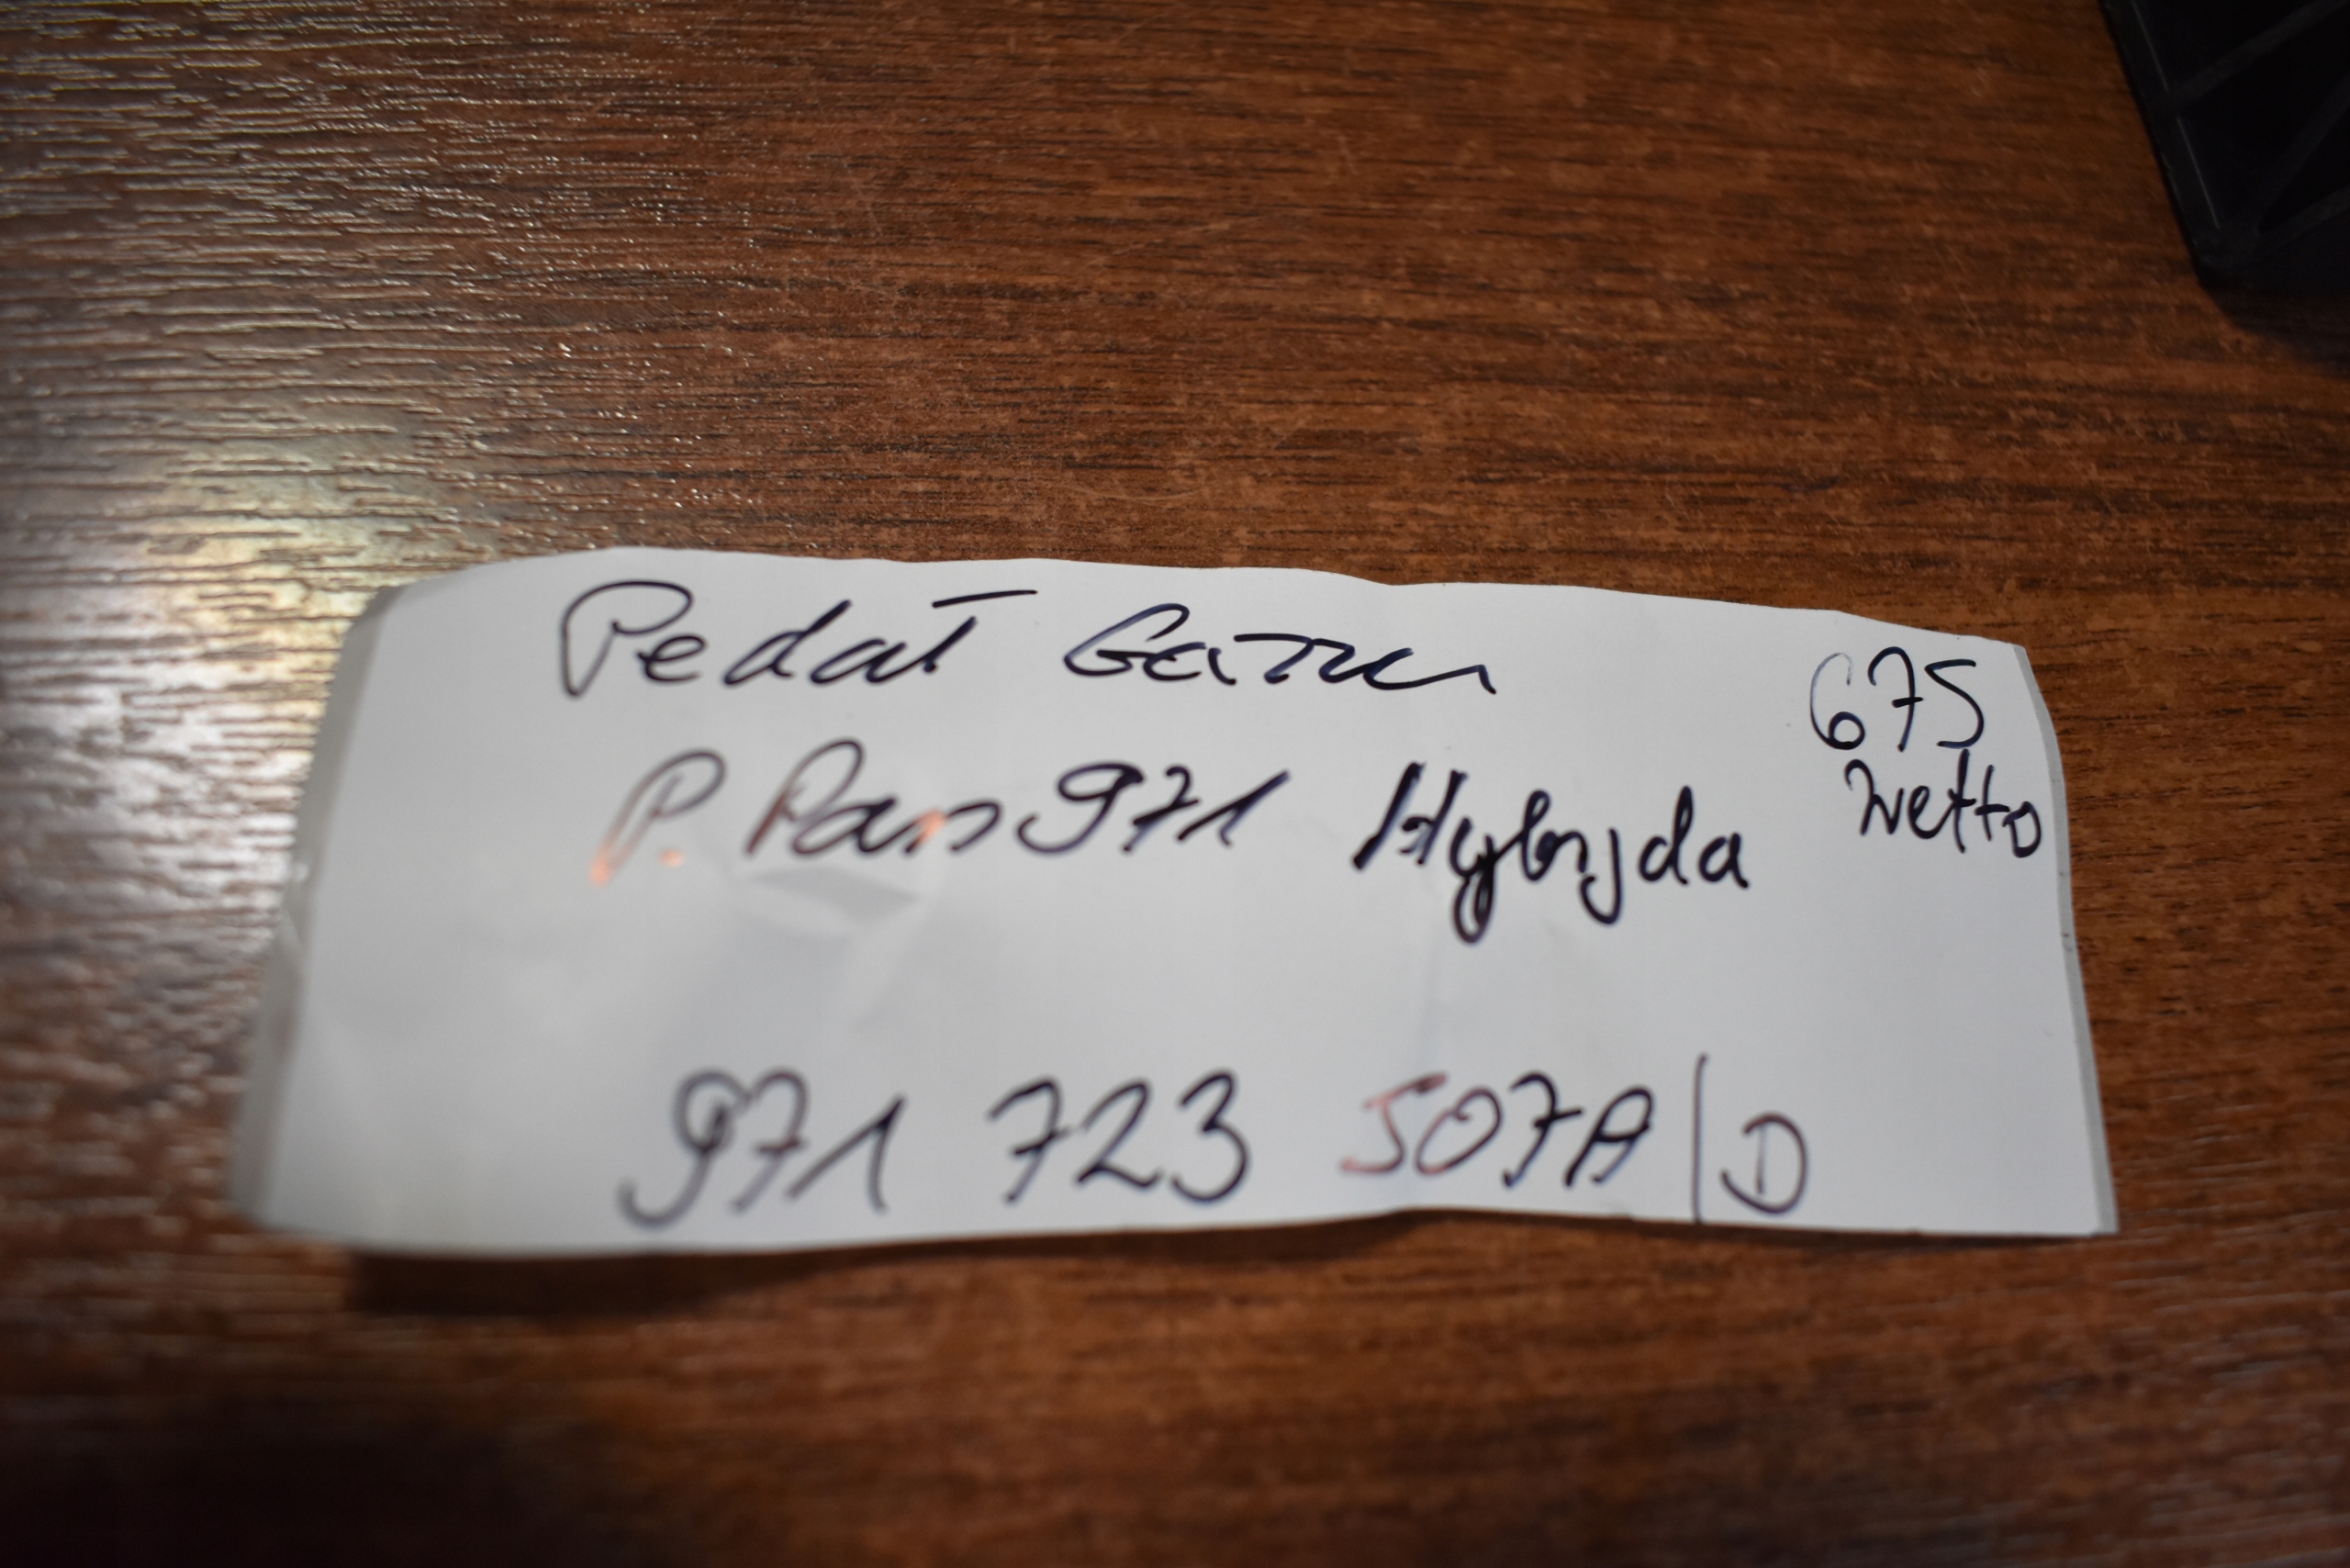 Pedał Gazu
675
netto
P. Pan 971 Hybryda
971 723 507A/D